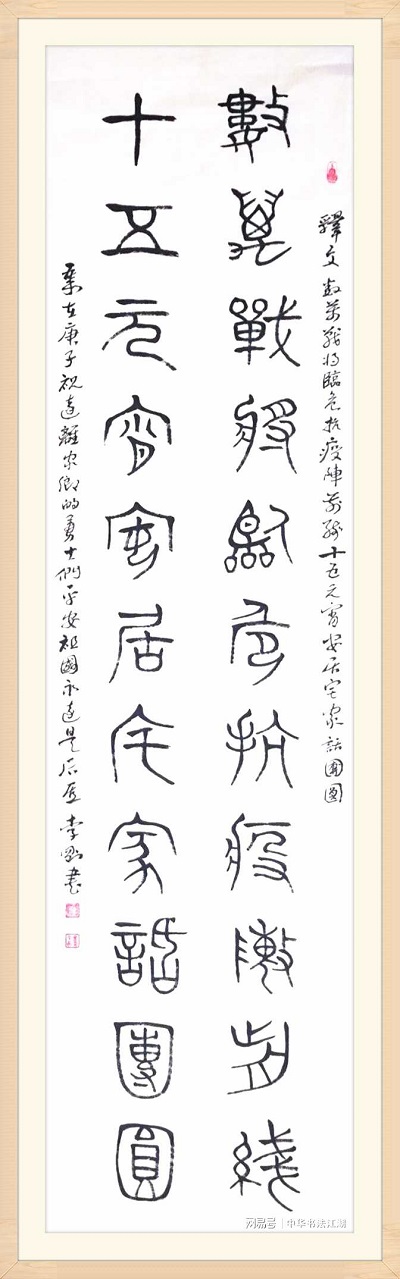 釋文 數萬戰將臨危抗疫陣前線十五元宵安居宅家話團圓
數萬戰將臨危抗疫陣前綫
十五元宵安居宅家話團圓
歲在庚子祝遠離家鄉的勇士們平安祖國永遠是后盾 李剛書
网易号 | 中华书法江湖